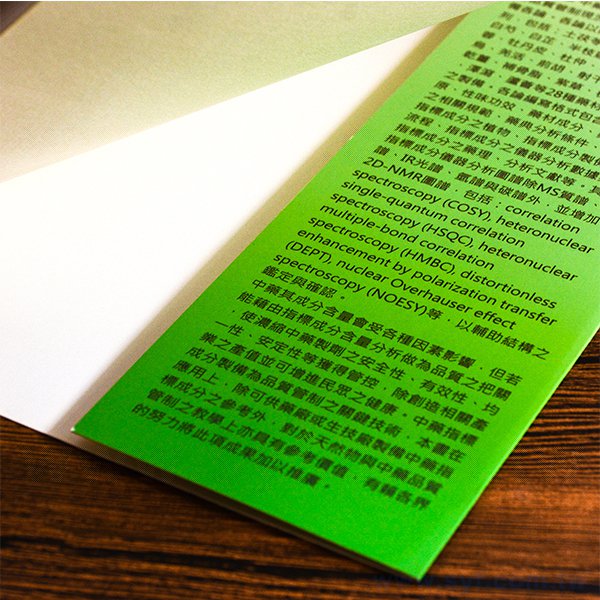 各論，各論以
列，包括：土茯苓
白芍、白芷、半枝
、牡丹皮、杜仲
、羌活、前胡、射干
、補骨脂、紫草
、蘆薈等28種藥材
之製備，各論編寫格式包含
原、性味功效、藥材成分
之相關規範、藥典分析條件
指標成分之植物、指標成分製備
流程，指標成分之儀器分析數據
指標成分之藥理、分析文獻等，其
指標成分儀器分析圖譜除MS質譜
譜、IR光譜、氫譜與碳譜外，並增加
2D-NMR圖譜，包括：correlation
spectroscopy (COSY), heteronuclear
single-quantum correlation
spectroscopy (HSQC), heteronuclear
multiple-bond correlation
spectroscopy (HMBC), distortionless
enhancement by polarization transfer
(DEPT), nuclear Overhauser effect
spectroscopy (NOESY)等，以輔助結構之
鑑定與確認。
中藥其成分含量會受各種因素影響，但若
能藉由指標成分含量分析做為品質之把關
，使濃縮中藥製劑之安全性、有效性、均
一性、安定性等獲得管控，除創造相關產
業之產值並可增進民眾之健康。中藥指標
成分製備為品質管制之關鍵技術，本書在
應用上，除可供藥廠或生技廠製備中藥指
標成分之參考外，對於天然物與中藥品質
管制之教學上亦具有參考價值，有賴各界
的努力將此項成果加以推廣。